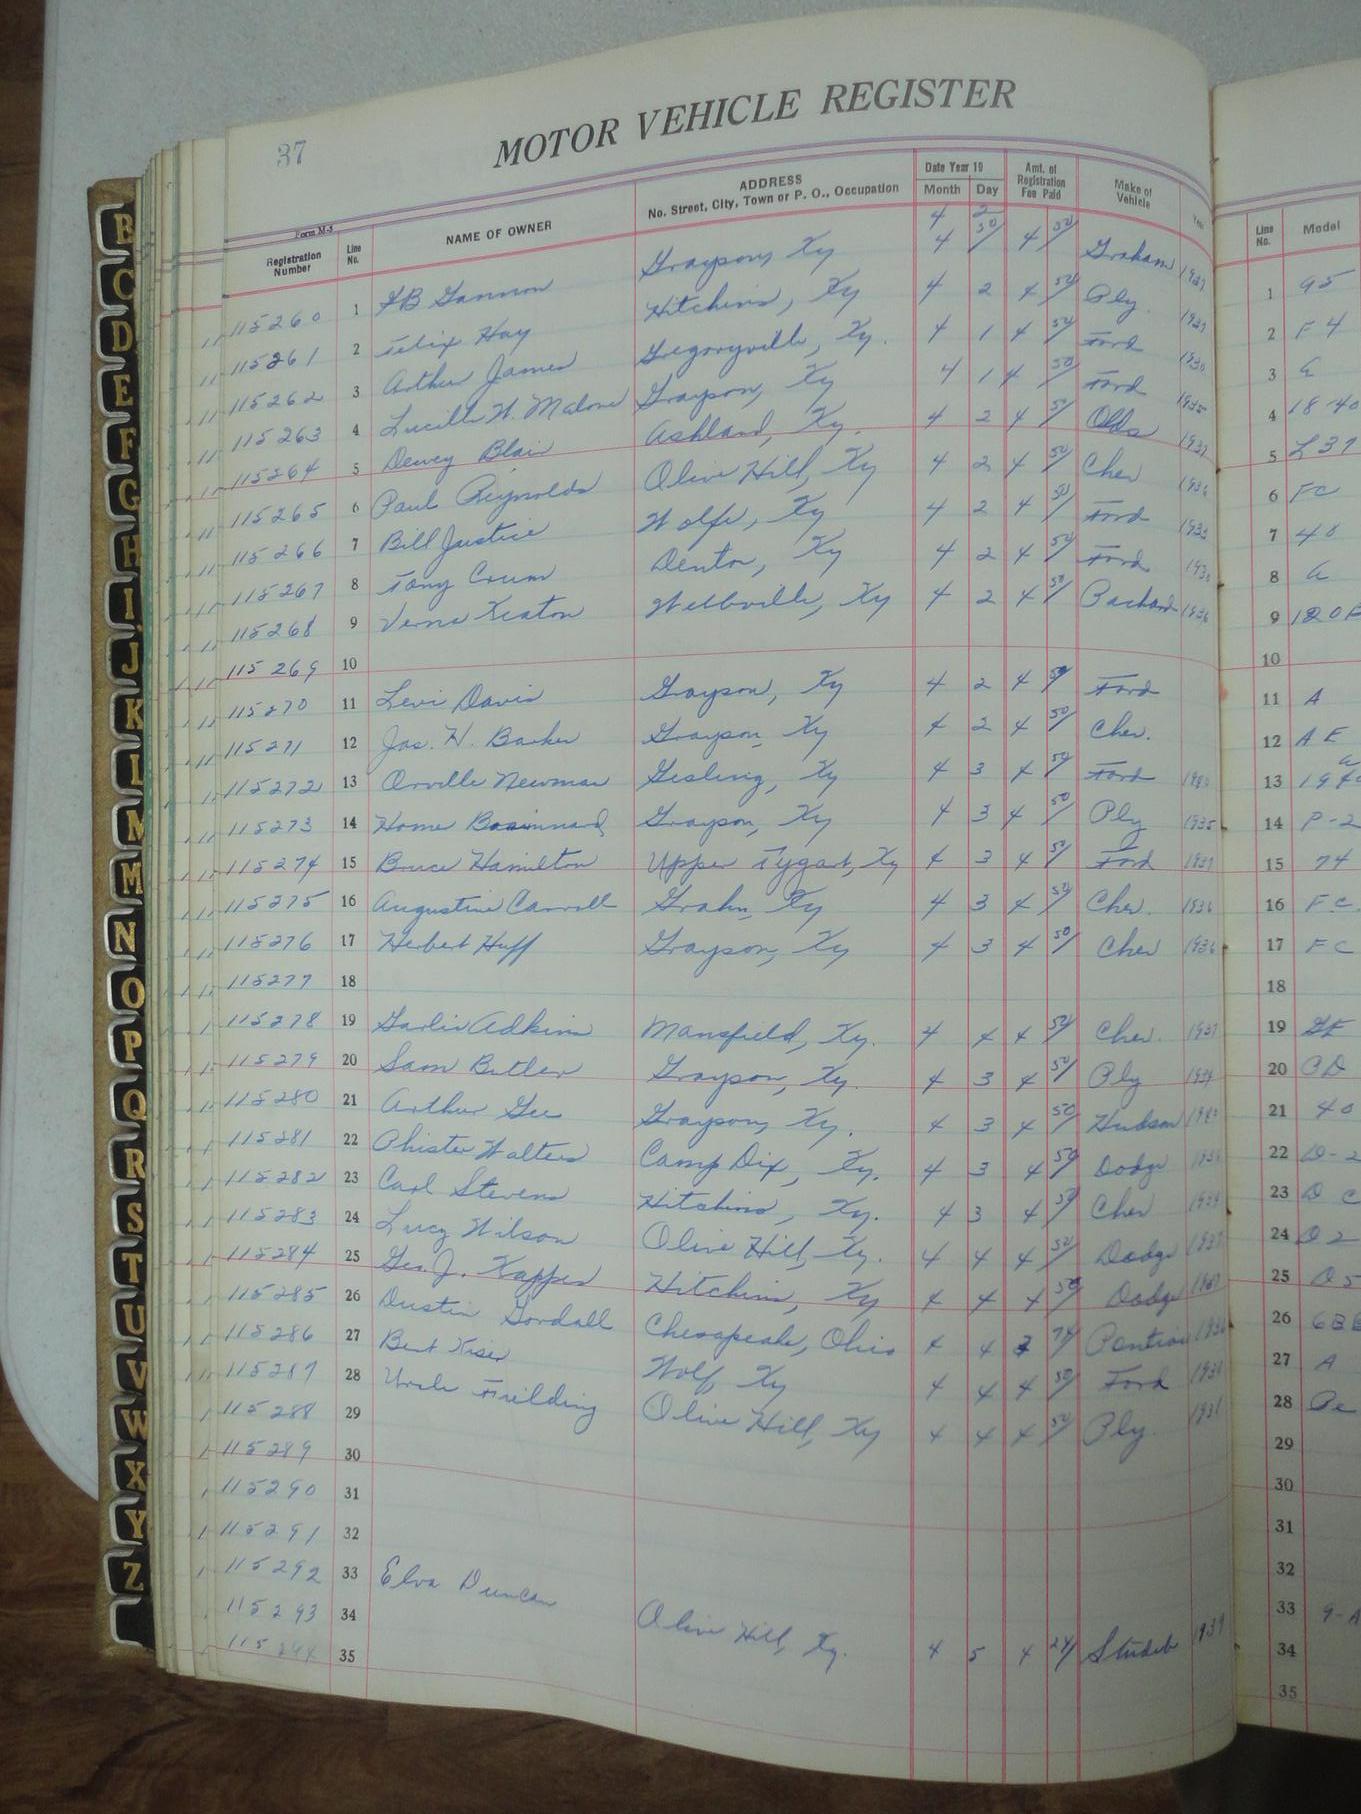 37
MOTOR VEHICLE REGISTER
Form M-5
Registration Number Line No. NAME OF OWNER ADDRESS No. Street, City, Town or P. O., Occupation Date Year 19 Month Day Amt. of Registration Fee Paid Make of Vehicle Line No. Model
4 2
115260 1 Gannon Grayson, Ky 4 4 50 Graham 1937 1 95
115261 2 Felix Hay Hitchins, Ky 4 2 4 50 Ply 1937 2 F 4
115262 3 Arthur James Gregoryville, Ky. 4 1 4 50 Ford 1930 3
115263 4 Lucille H. Malone Grayson, Ky 4 1 4 50 Ford 1935 4 18 40
115264 5 Dewey Blair Ashland, Ky. 4 2 4 50 Olds 1937 5 L 37
115265 6 Paul Reynolds Olive Hill, Ky 4 2 4 50 Chev 1936 6 FC
115266 7 Bill Justice Wolfe, Ky 4 2 4 50 Ford 1933 7 40
115267 8 Tony Crum Denton, Ky 4 2 4 50 Ford 1930 8 a
115268 9 Verne Keaton Webbville, Ky 4 2 4 50 Packard 1936 9 120
115269 10 10
115270 11 Levi Davis Grayson, Ky 4 2 4 50 Ford 11 A
115271 12 Jas. H. Barker Grayson, Ky 4 2 4 50 Chev. 12 A E
115272 13 Orville Newman Gesling, Ky 4 3 4 50 Ford 13
115273 14 Home Grayson, Ky 4 3 4 50 Ply 1935 14 P-2
115274 15 Bruce Hamilton Upper Tygart, Ky 4 3 4 50 Ford 1937 15 74
115275 16 Augustine Carroll Grahn, Ky 4 3 4 50 Chev. 1936 16 F C
115276 17 Herbert Huff Grayson, Ky 4 3 4 50 Chev 1936 17 F C
115277 18 18
115278 19 Adkins Mansfield, Ky. 4 4 4 50 Chev. 1937 19
115279 20 Sam Butler Grayson, Ky. 4 3 4 50 Ply 20
115280 21 Arthur Gee Grayson, Ky. 4 3 4 50 Hudson 21 40
115281 22 Phister Walters Camp Dix, Ky. 4 3 4 50 Dodge 22 D-2
115282 23 Carl Stevens Hitchins, Ky. 4 3 4 50 Chev 23 D C
115283 24 Lucy Wilson Olive Hill, Ky. 4 4 4 50 Dodge 24 D2
115284 25 Geo. J. Kappes Hitchins, Ky 4 4 4 50 Dodge 25 D5
115285 26 Dustin Chesapeake, Ohio 4 4 Pontiac 1936 26
115286 27 Bert Kiser Wolf, Ky 4 4 4 50 Ford 27 A
115287 28 Fielding Olive Hill, Ky 4 4 4 50 Ply 28
115288 29 29
115289 30 30
115290 31 31
115291 32 32
115292 33 Elva Duncan Olive Hill, Ky. 4 5 4 24 Studeb 1939 33
115293 34 34
115294 35 35
B
C
D
E
F
G
H
I
J
K
L
M
M
N
O
P
Q
R
S
T
U
V
W
X
Y
Z